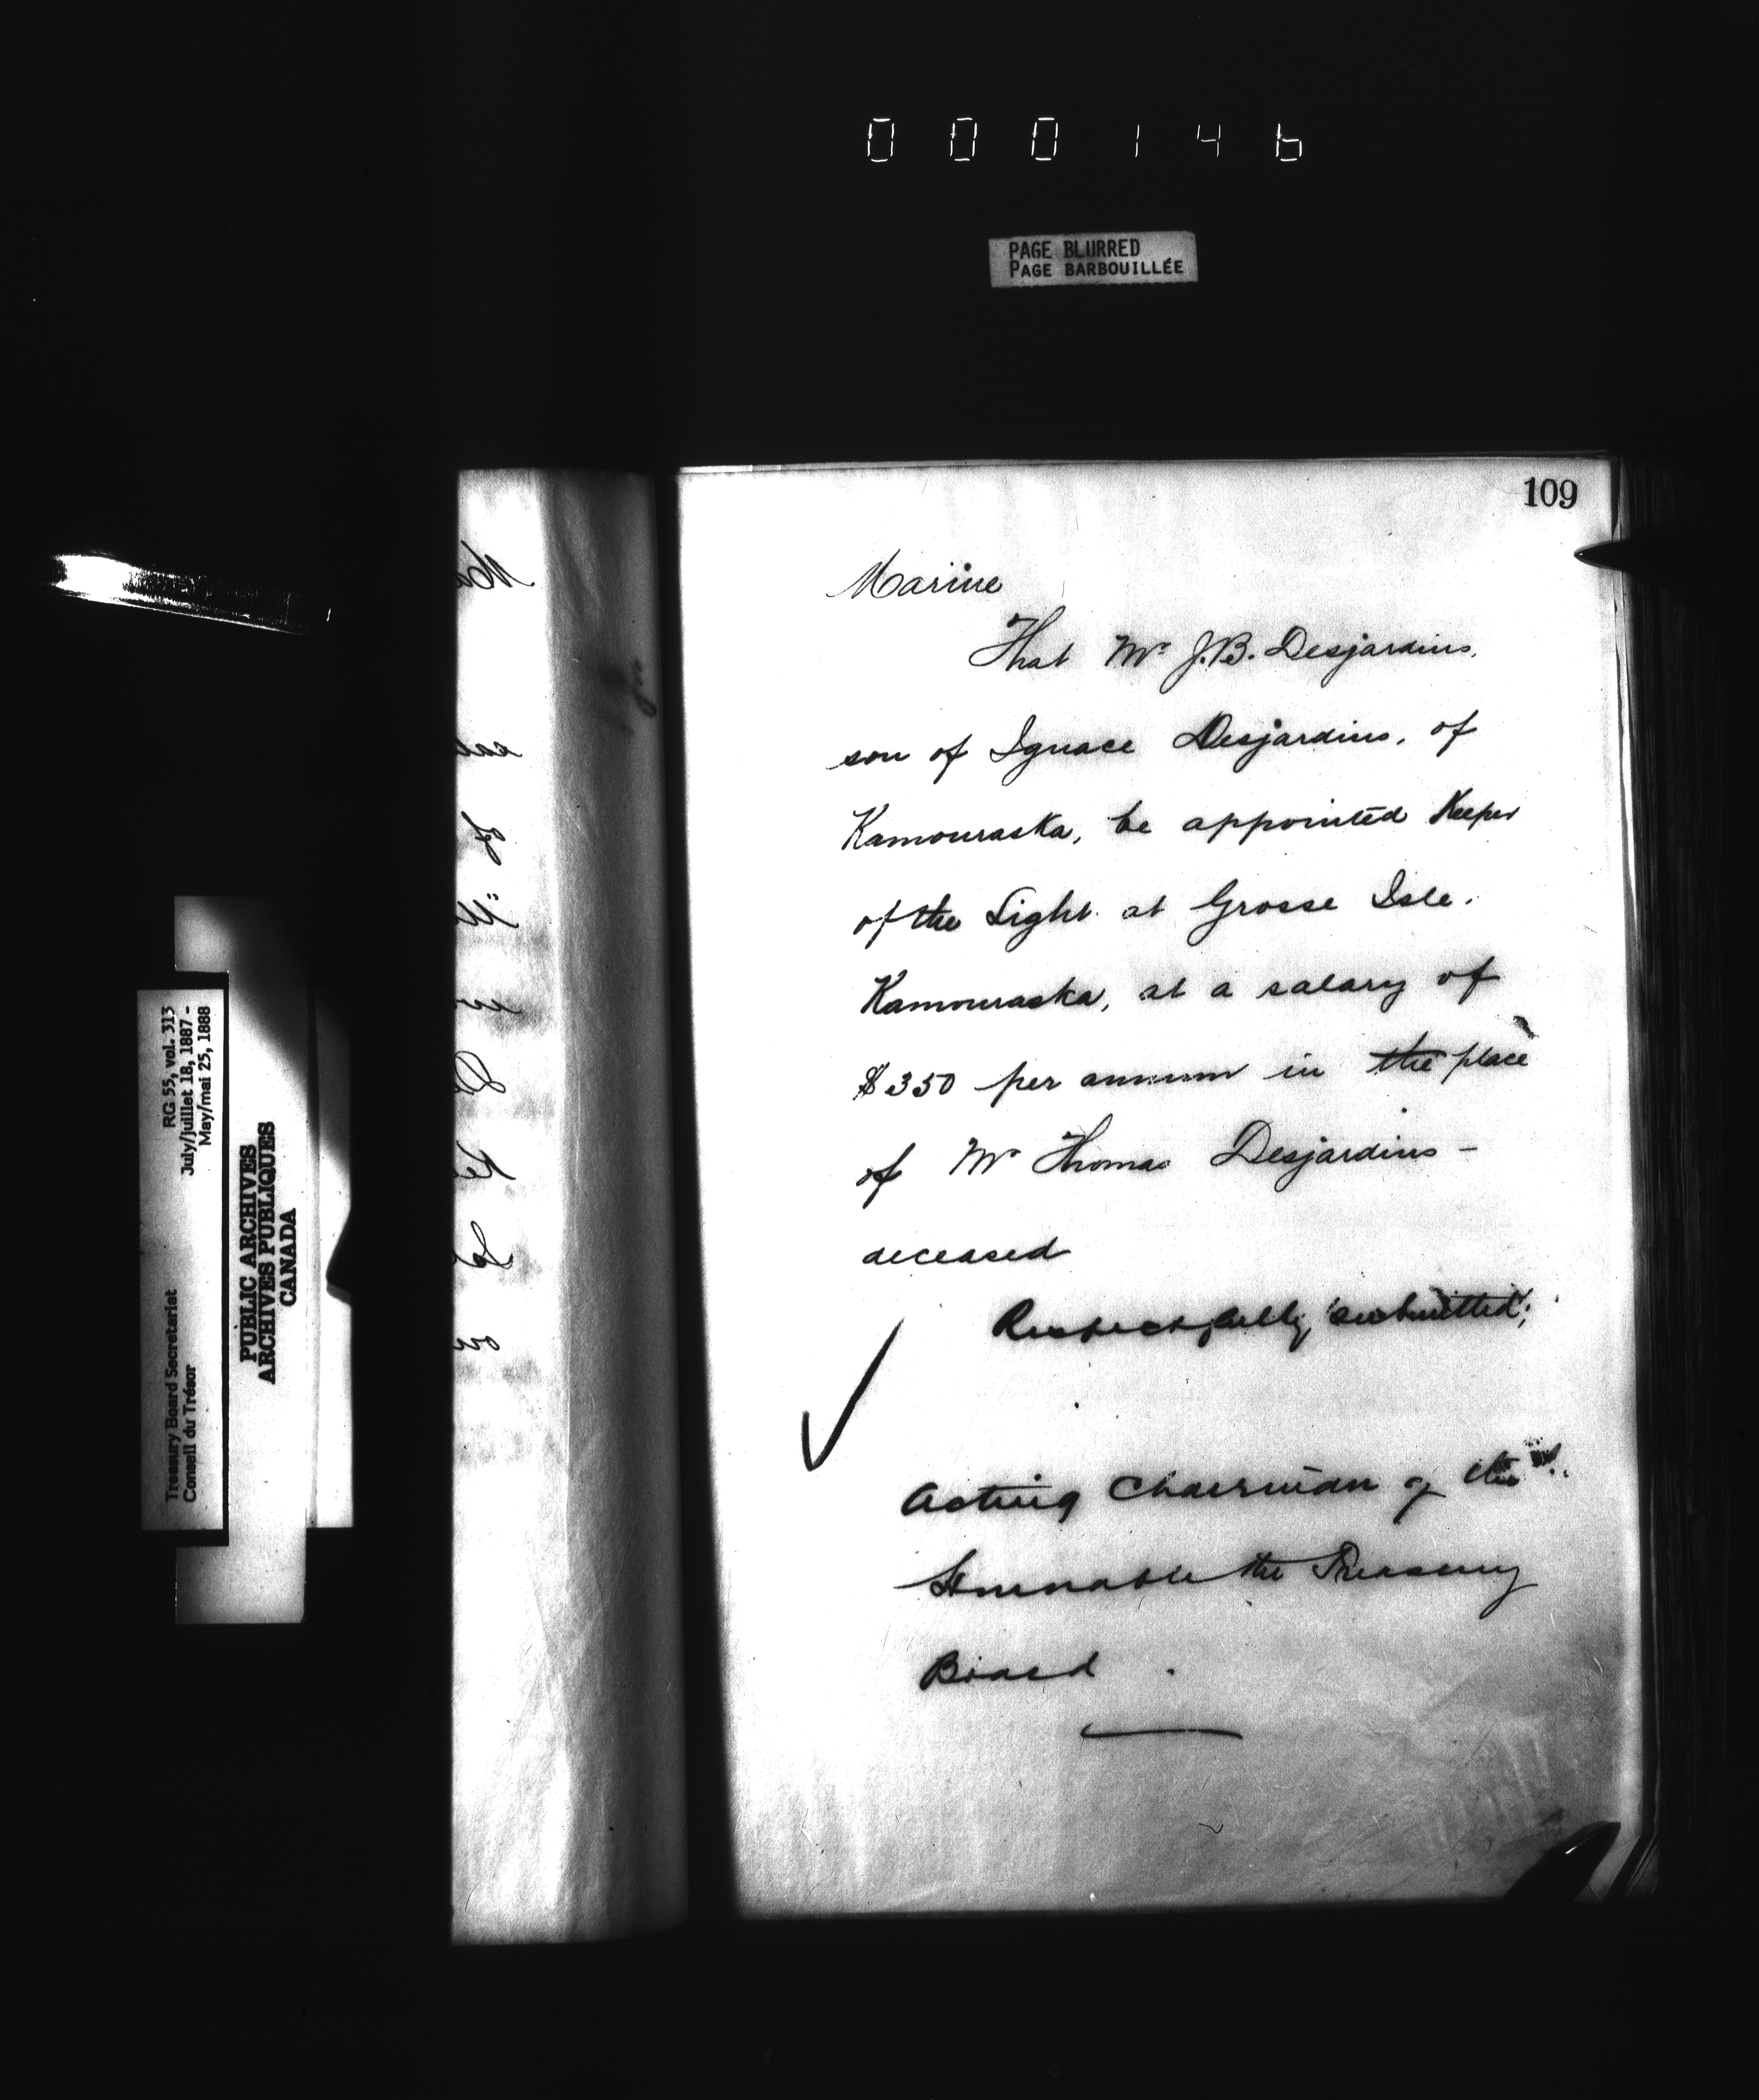 000146
PAGE BLURRED
PAGE BARBOUILLÉE
109
Marine
That Mr J.B. Desjardins,
son of Ignace Desjardins, of
Kamouraska, be appointed Keeper
of the Light at Grosse Isle,
Kamouraska, at a salary of
$350 per annum in the place
of Mr Thomas Desjardins -
deceased
Respectfully submitted,
Acting Chairman of the
Honorable the Treasury
Board.
RG 55, vol. 313
July/juillet 18, 1887 -
May/mai 25, 1888
Treasury Board Secretariat
Conseil du Trésor
PUBLIC ARCHIVES
ARCHIVES PUBLIQUES
CANADA